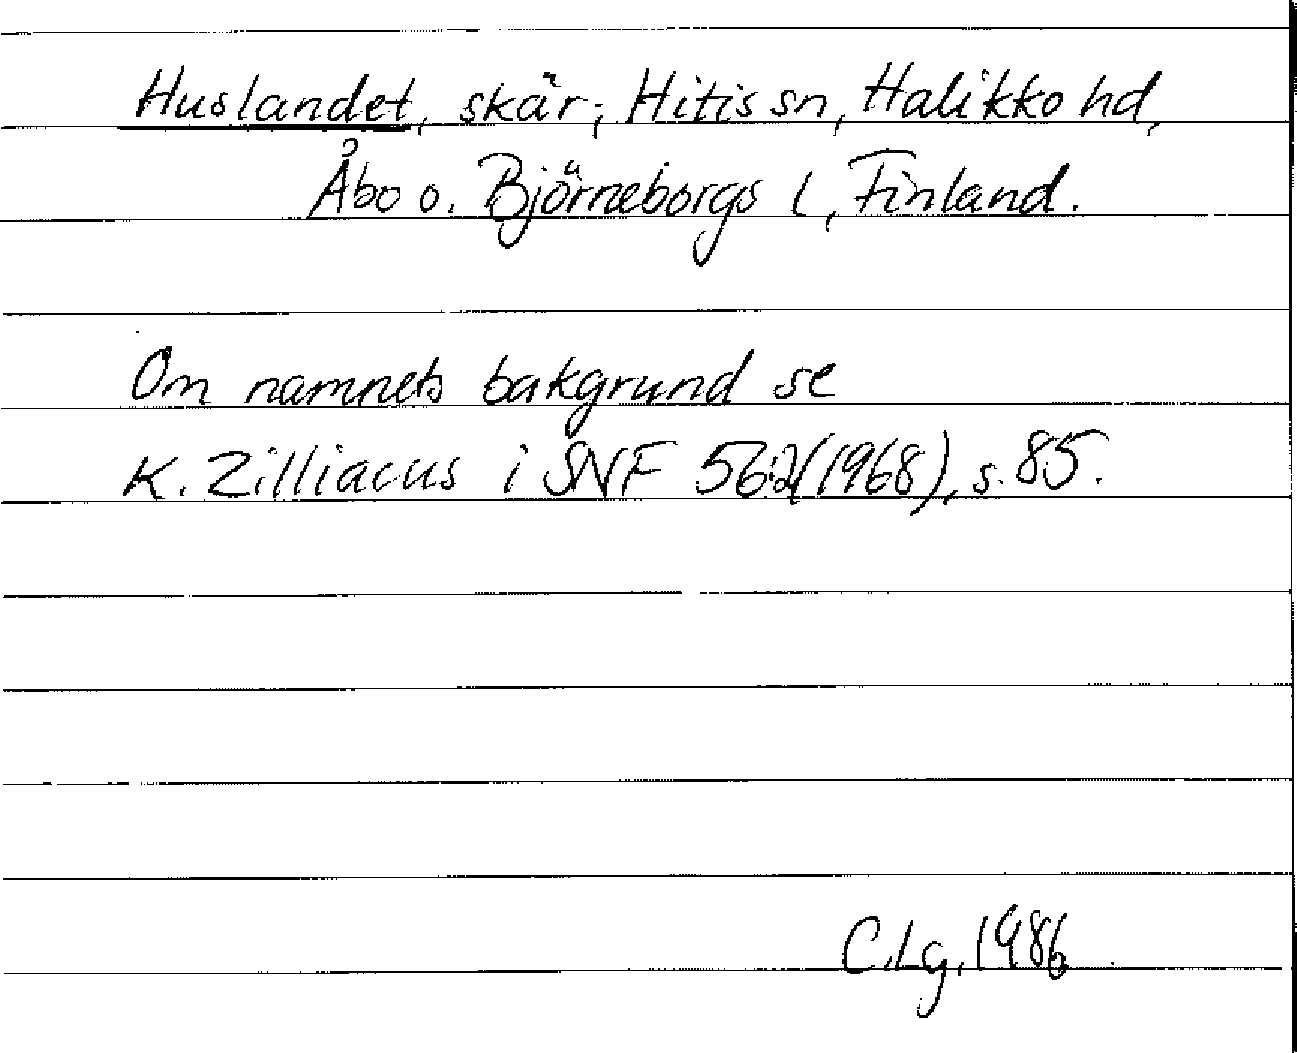 Huslandet, skär; Hitis sn, Halikko hd,
Åbo o. Björneborgs l, Finland.
Om namnets bakgrund se
K. Zilliacus i SNF 56:2(1968), s. 85.
C.Lg. 1986